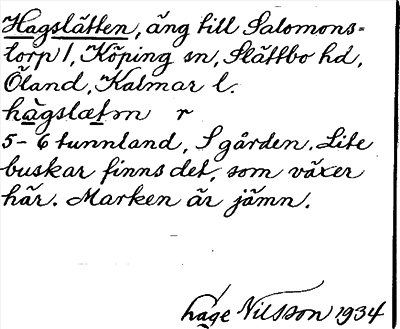 Hagslätten, äng till Salomons-
torp 1, Köping sn, Slättbo hd,
Öland, Kalmar l.
hàgslætən r
5-6 tunnland, S gården. Lite
buskar finns det, som växer
här. Marken är jämn.
Åge Nilsson 1934